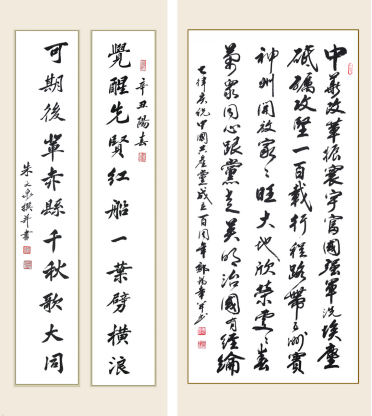 中華改革振寰宇富國強軍洗埃塵
砥礪攻堅一百載行程路帶五洲賓
神州開放家家旺大地欣榮處處春
同心跟黨走英明治國有經綸
七律慶祝中國共產黨成立百周年
辛丑陽春
覺醒先賢紅船一葉劈橫浪
可期後輩赤縣千秋歌大同
朱文泉撰并書